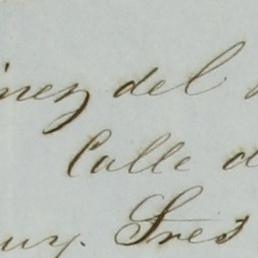 inez del
Calle d
uy. Sres